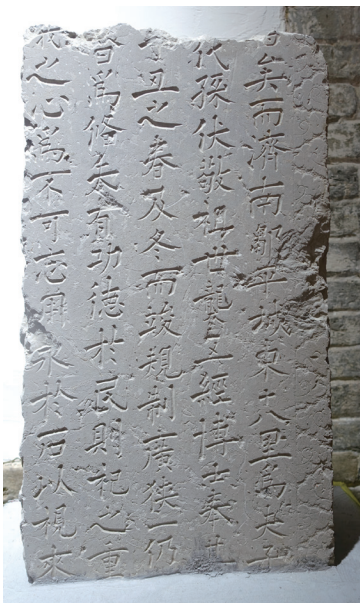 矣而濟南鄒平城東十八里爲夫子
代孫伏敬祖世襲五經博士奉
丑之春及冬而竣規制廣狹一仍
爲脩夫有功德於民則祀之重
之心爲不可忘用永於石以視來